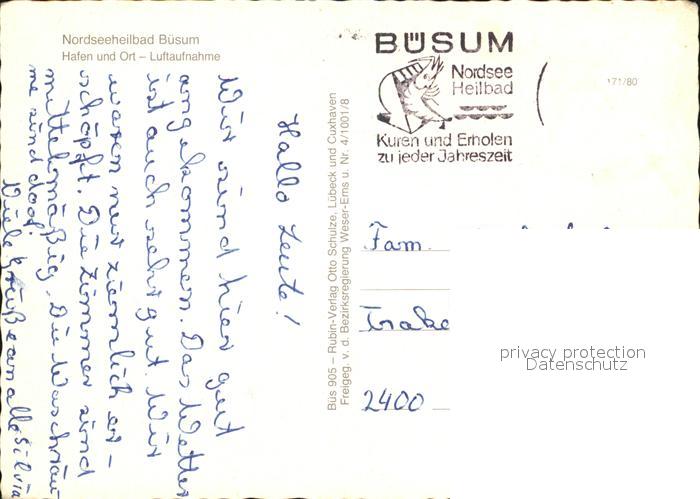 Nordseeheilbad Büsum
Hafen und Ort – Luftaufnahme
BÜSUM
Nordsee
Heilbad
Kuren und Erholen
zu jeder Jahreszeit
171/80
Hallo Leute!
Wir sind hier gut
angekommen. Das Wetter
ist auch sehr gut. Wir
waren nur ziemlich er-
schöpft. Die Zimmer sind
mittelmäßig. Die Waschräu
me sind doof.
Viele Grüße an alle Silvia
Büs 905 – Rubin-Verlag Otto Schulze, Lübeck und Cuxhaven
Freigeg. v. d. Bezirksregierung Weser-Ems u. Nr. 4/1001/8
Fam.
Trake
2400
privacy protection
Datenschutz